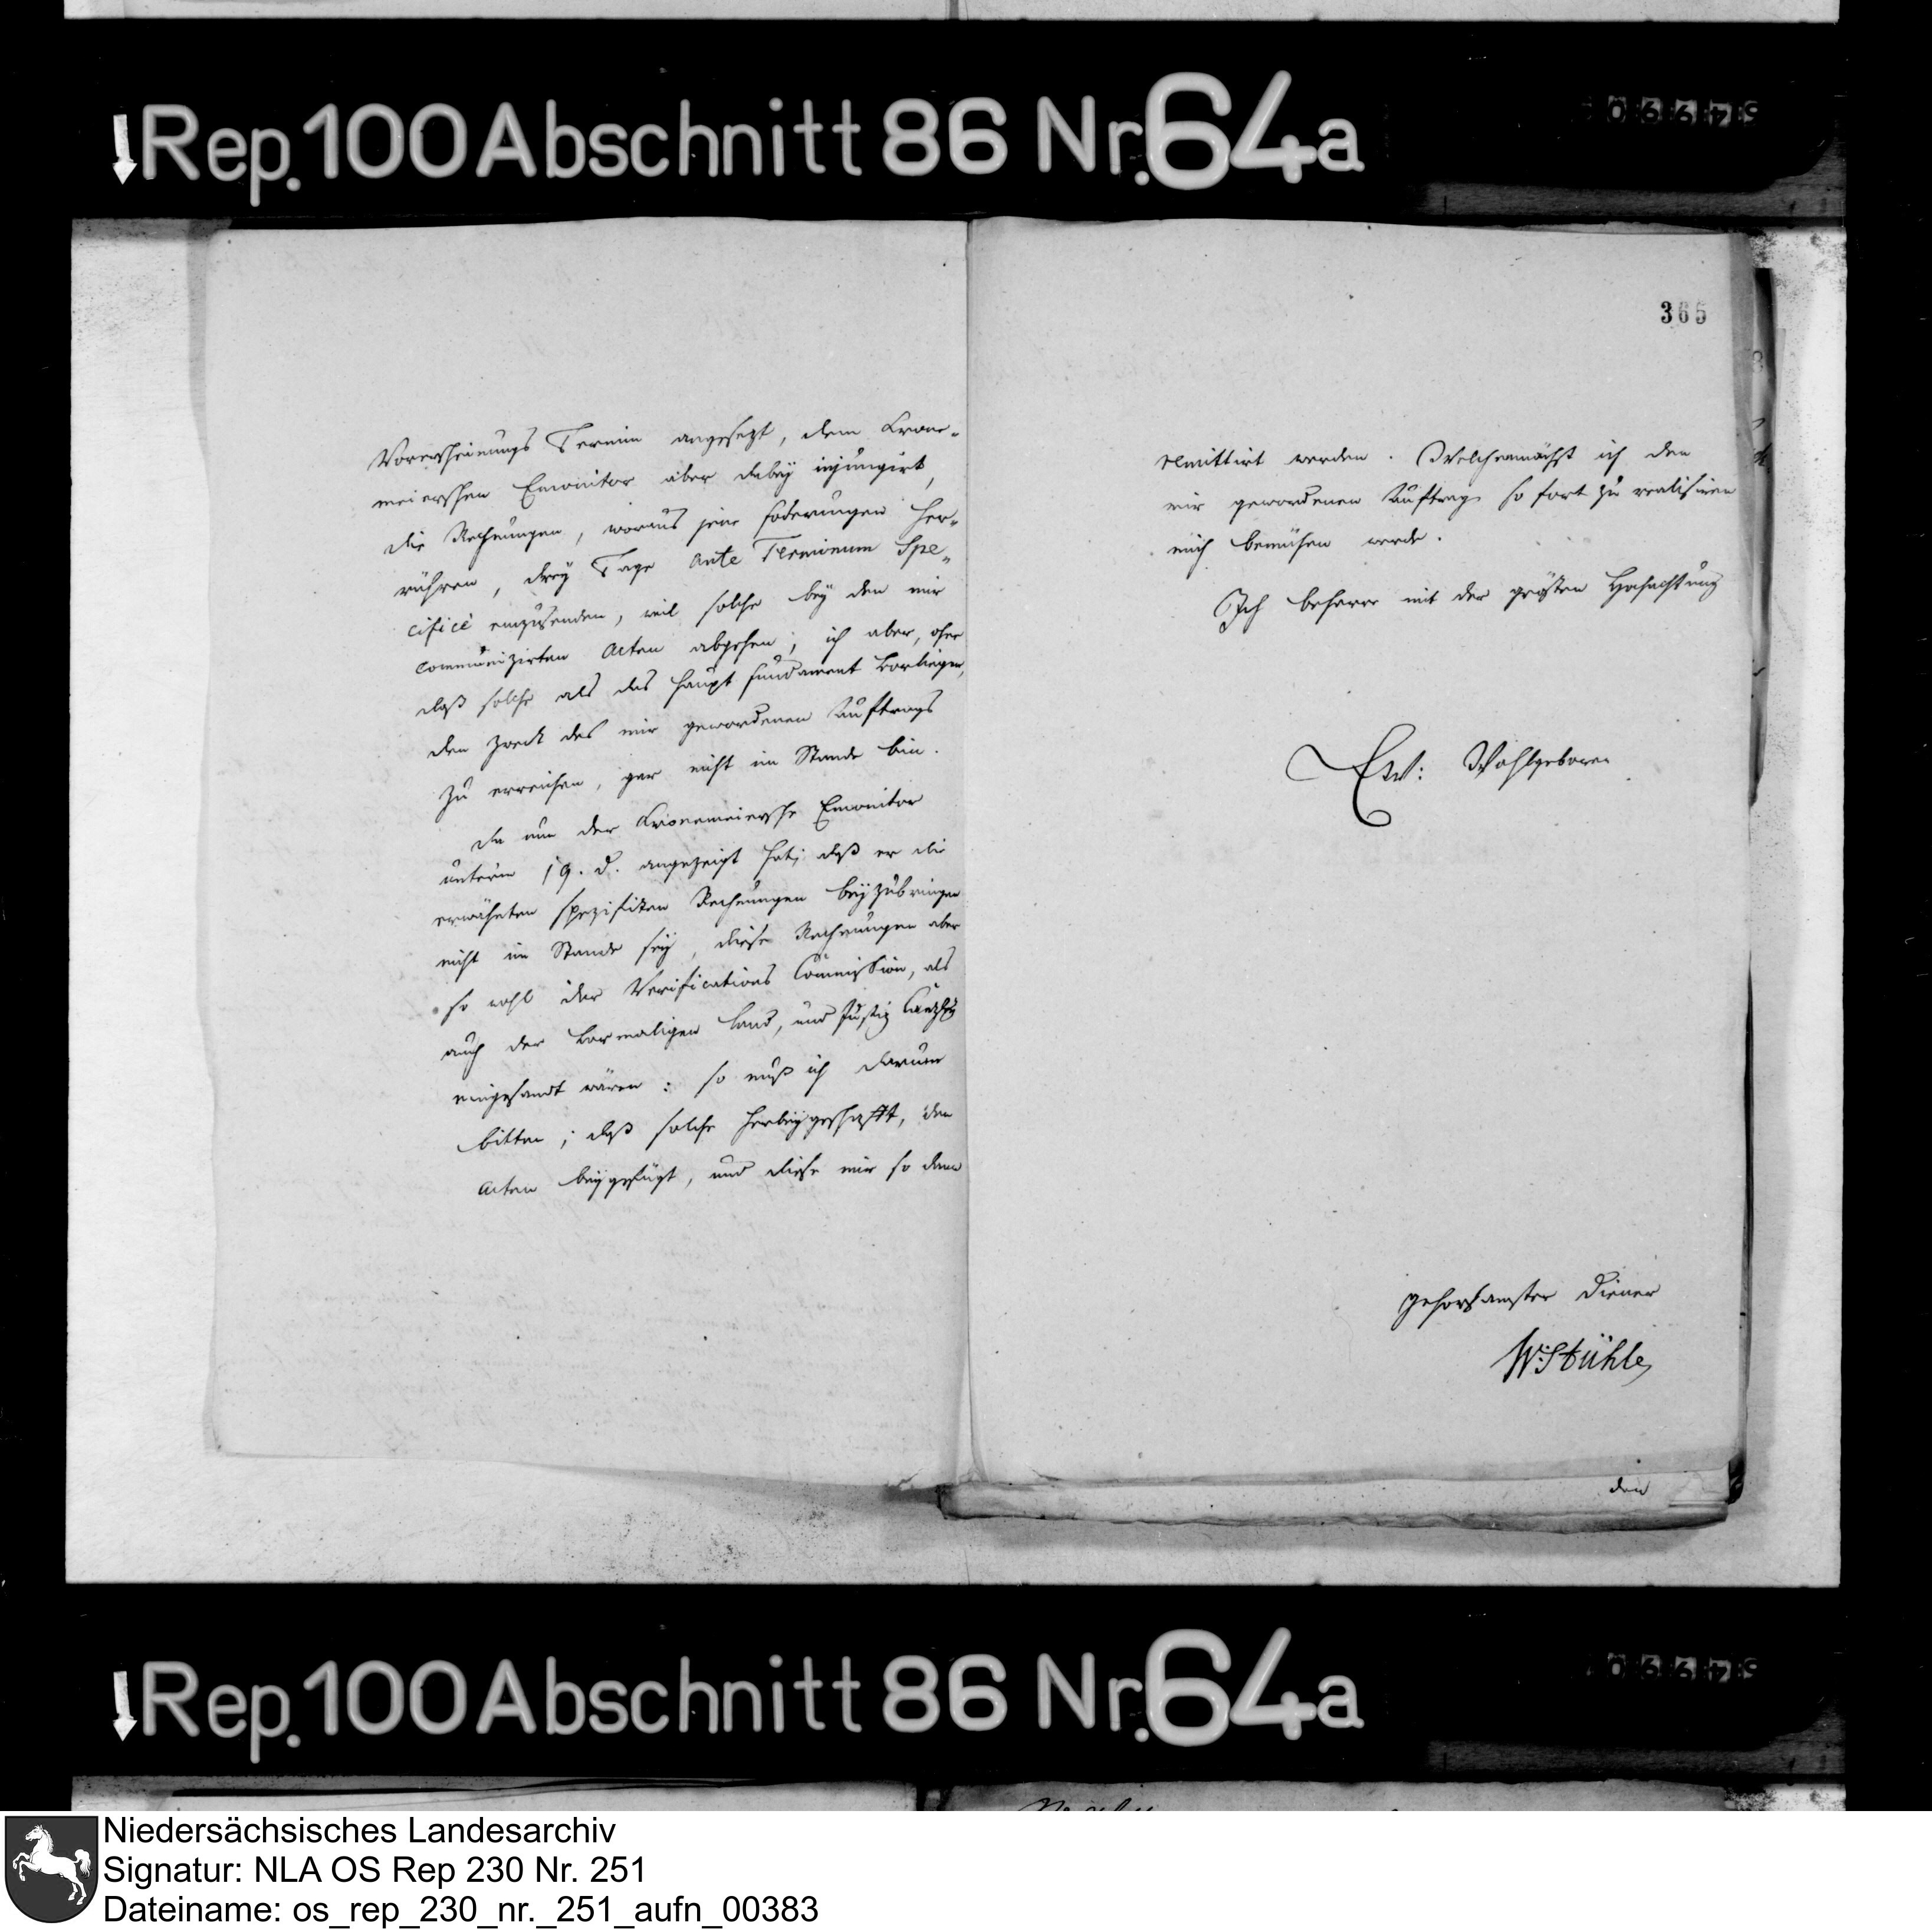 Rep. 100 Abschnitt 86 Nr. 64a
Vorerscheinungs Termin angesezt, dem Krone-
meierschen Emonitor aber dabey injungirt,
die Rechnungen, woraus jene Foderungen her-
rühren, drey Tage ante Terminum Spe-
cificé einzusenden, weil solche bey den mir
communizirten Acten abgehen; ich aber, ohne
daß solche als das Haupt Fundament vorliegen,
den Zweck des mir gewordenen Auftrags
zu erreichen, gar nicht im Stande bin.
Da nun der Kronemeiersche Emonitor
unterm 19. d. angezeigt hat; daß er die
erwähnten spezifiken Rechnungen beyzubringen
nicht im Stande sey, diese Rechnungen aber
so wohl der Verifications Commission, als
auch der vormaligen Land, und Justiz Canzley
eingesandt wären: so muß ich darum
bitten; daß solche herbeygeschafft, den
Acten beygefügt, und diese mir so dann
365
remittirt werden. Welchemnächst ich den
mir gewordenen Auftrag so fort zu realisiren
mich bemühen werde.
Ich beharre mit der grösten Hochachtung
Ew: Wohlgeboren
gehorsamster Diener
W: Stühle
den
Rep. 100 Abschnitt 86 Nr. 64a
Niedersächsisches Landesarchiv
Signatur: NLA OS Rep 230 Nr. 251
Dateiname: os_rep_230_nr._251_aufn_00383